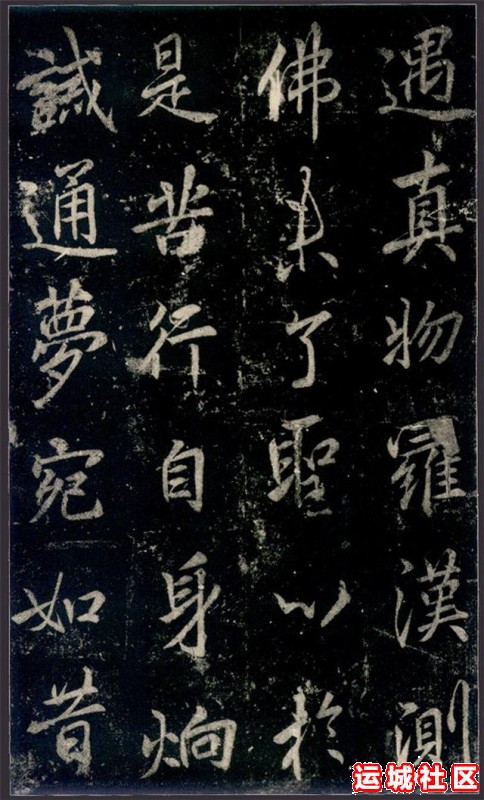 遇真物羅漢測
佛未了聖以於
是苦行自身炯
誡通夢宛如昔
运城社区